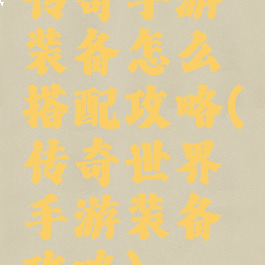 传奇手游
装备怎么
搭配攻略(
传奇世界
手游装备
攻略)